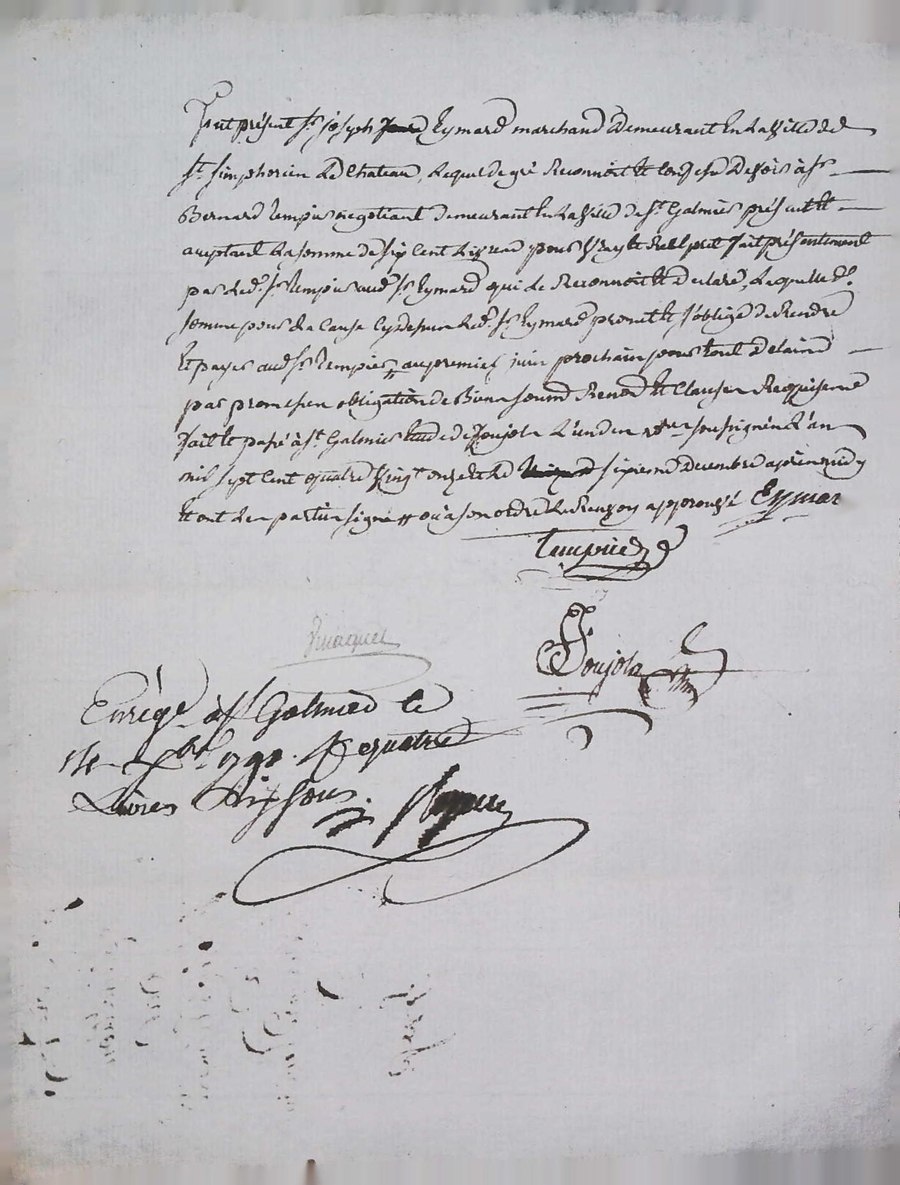 fut présent sr joseph Eymard marchand demeurant en la ville de
st simphorien le Chateau, lequel de gré Reconnoit et Confesse devoir à sr
Bernard tempier negotiant demeurant en la ville de st Galmier présent et
acceptant la somme de six Cent Livres pour vray et Reel prêt fait présentement
par led. sr tempier aud. sr Eymard qui le Reconnoit et declare, laquelle de.
somme pour la Cause Cy dessus led. sr Eymard promet et s'oblige de Rendre
Et payer aud. sr tempier # au premier juin prochain pour tout delaird
par promesses obligation de Biens soumd Renond et Clauses Requises
fait et passé à st Galmier Etude de Soujola L'un des nres soussignés L'an
mil sept Cent quatre vingt onze et le sixieme decembre après midy
Et ont les parties signé # ou à son ordre le Renvoy approuvé Eymar
Tempier
Soujola
Enregé à st Galmier le
xbre 1791. R quatre
Livres dix sous